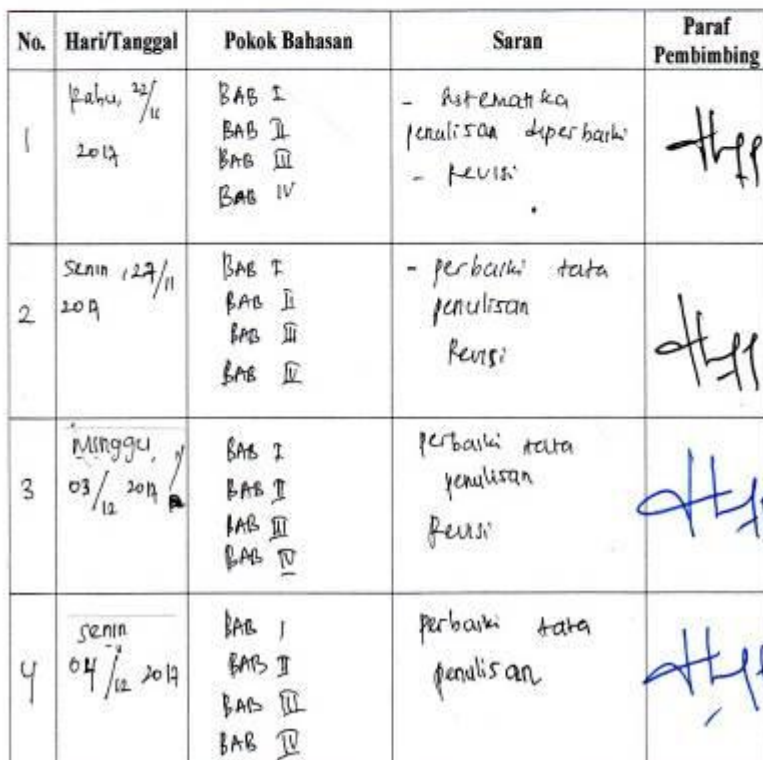 No. Hari/Tanggal Pokok Bahasan Saran Paraf Pembimbing
1
Rabu, 22/11
2017
BAB I
BAB II
BAB III
BAB IV
- Sistematika
penulisan diperbaiki
- Revisi
2
Senin, 27/11
2017
BAB I
BAB II
BAB III
BAB IV
- perbaiki tata
penulisan
Revisi
3
Minggu,
03/12 2017
BAB I
BAB II
BAB III
BAB IV
perbaiki tata
penulisan
Revisi
4
Senin
04/12 2017
BAB I
BAB II
BAB III
BAB IV
perbaiki tata
penulisan